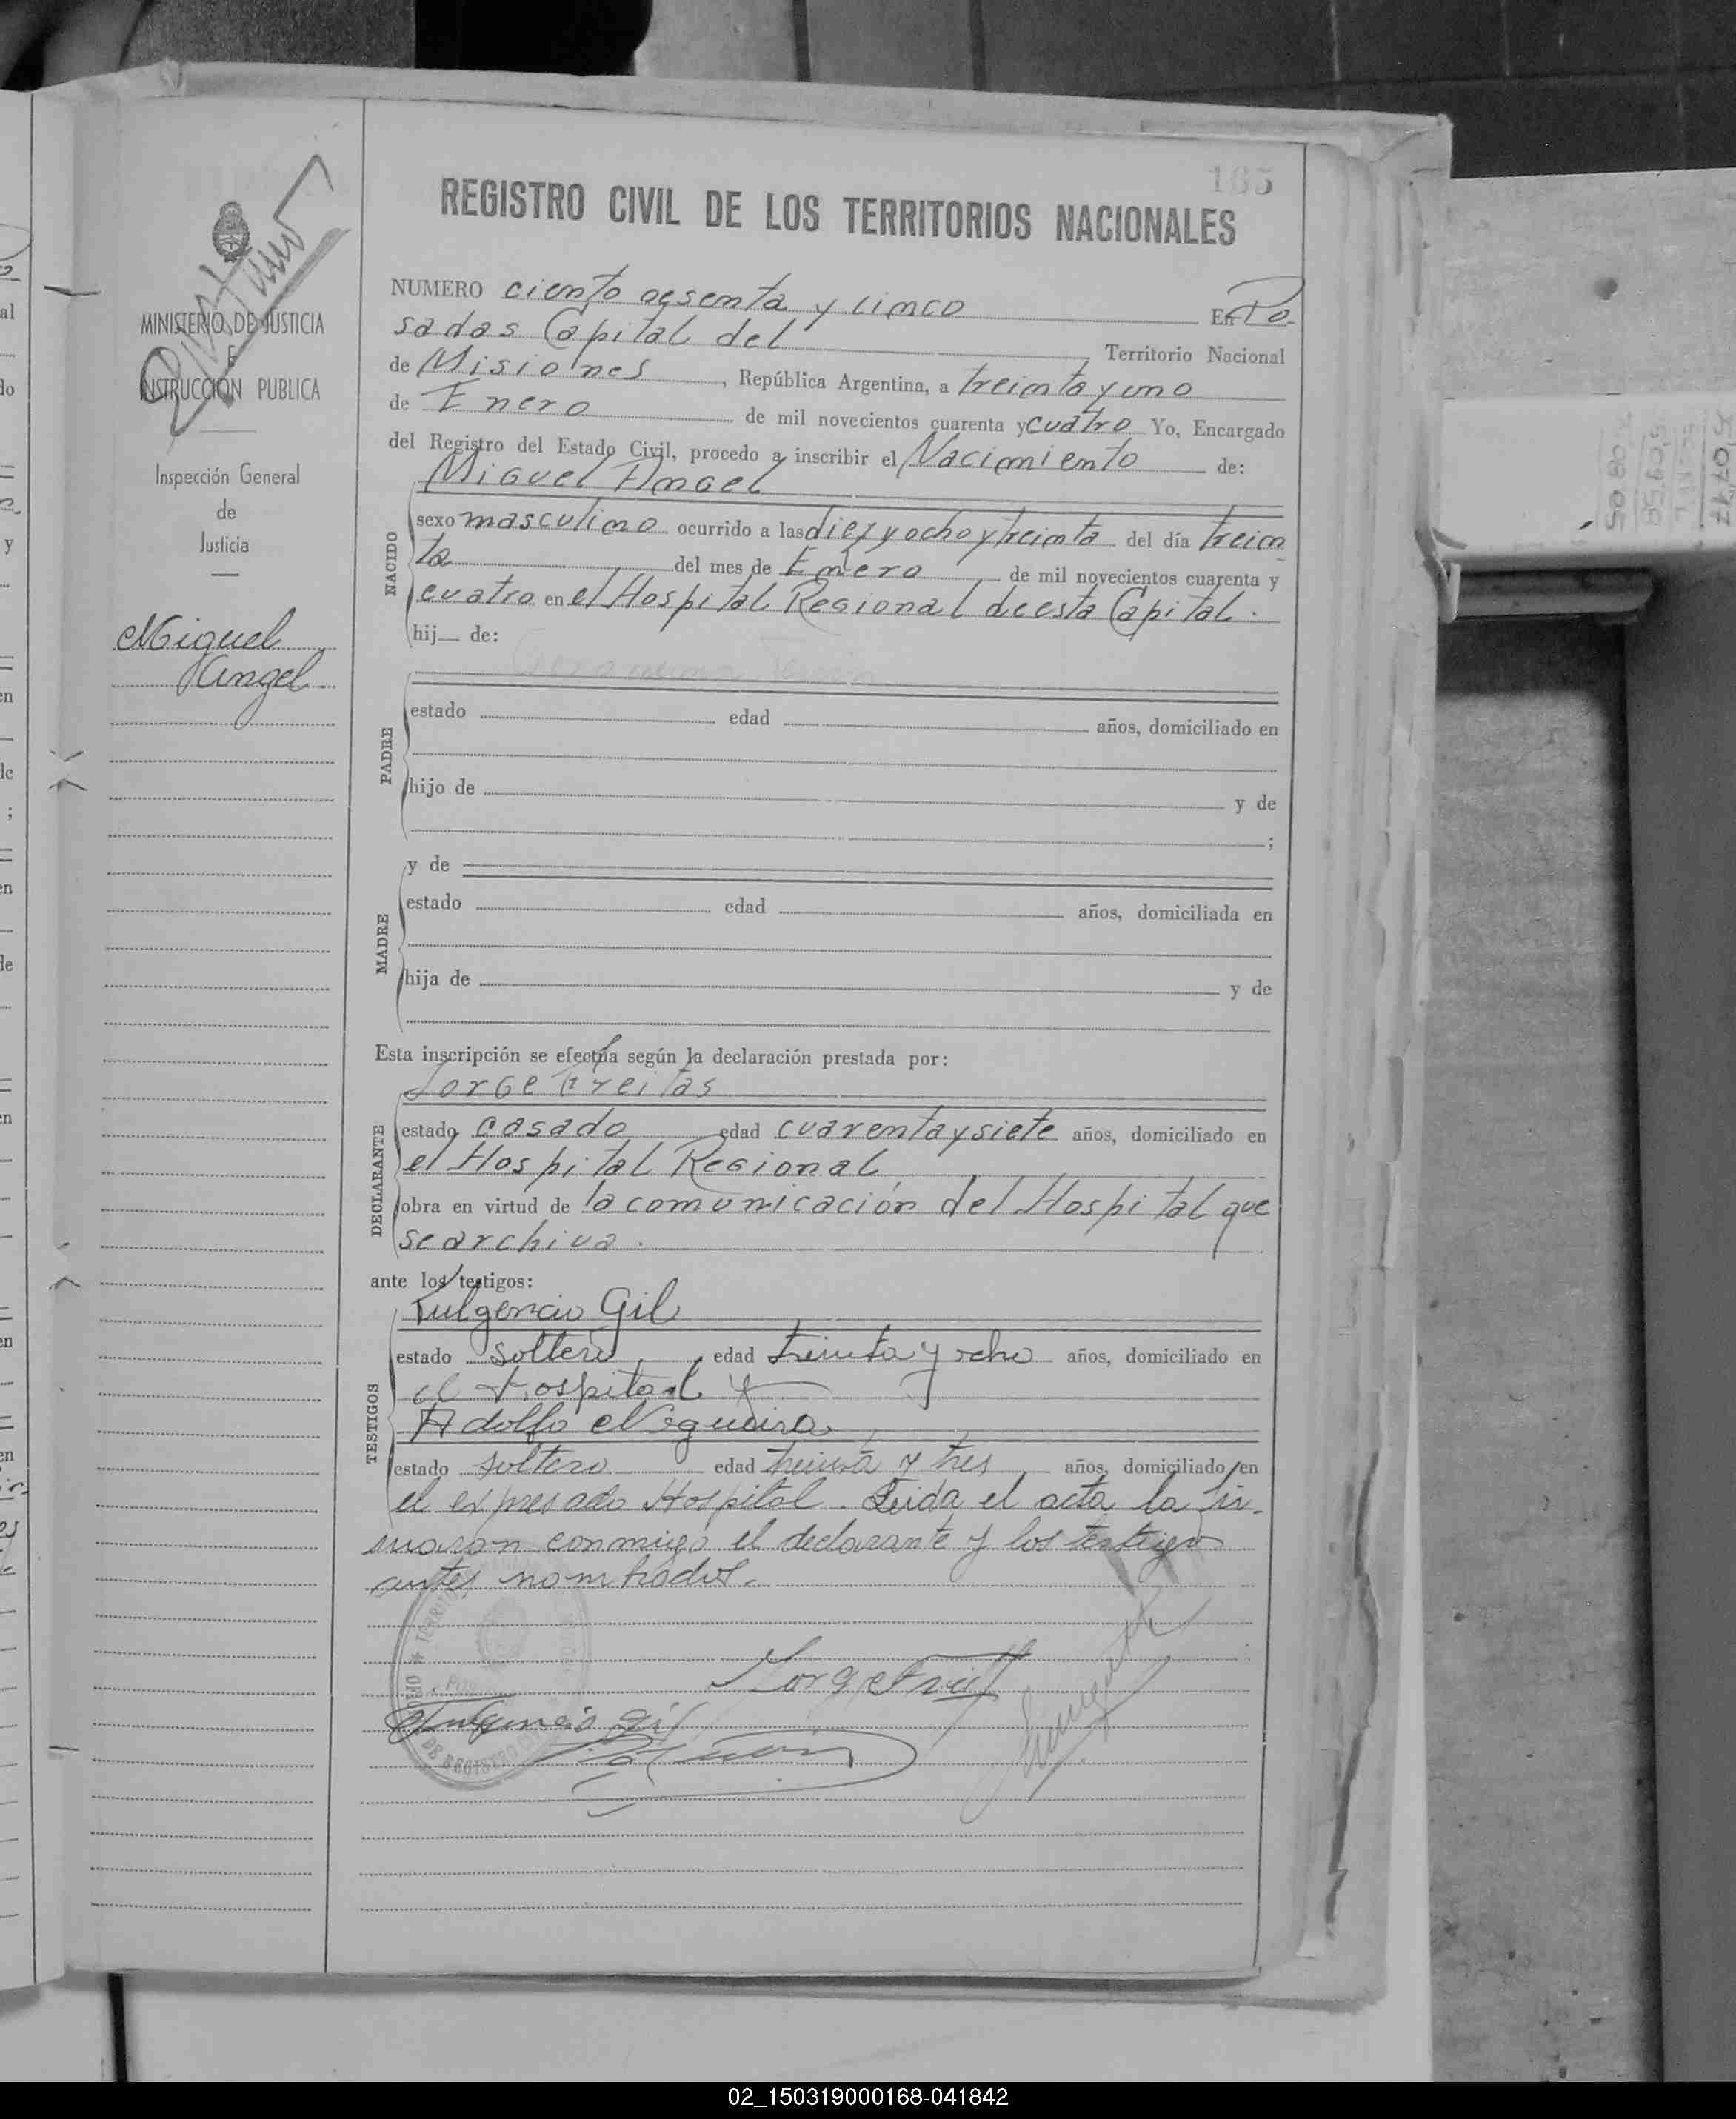 165
REGISTRO CIVIL DE LOS TERRITORIOS NACIONALES
MINISTERIO DE JUSTICIA
E
INSTRUCCIÓN PUBLICA
Inspección General
de
Justicia
Miguel
Angel
NUMERO ciento sesenta y cinco En Po-
sadas Capital del Territorio Nacional
de Misiones, República Argentina, a treinta y uno
de Enero de mil novecientos cuarenta y cuatro Yo, Encargado
del Registro del Estado Civil, procedo a inscribir el Nacimiento de:
NACIDO
Miguel Angel
sexo masculino ocurrido a las diez y ocho y treinta del día trein
ta del mes de Enero de mil novecientos cuarenta y
cuatro en el Hospital Regional de esta Capital.
hij de:
PADRE
estado edad años, domiciliado en
hijo de y de
;
MADRE
y de
estado edad años, domiciliada en
hija de y de
Esta inscripción se efectúa según la declaración prestada por:
DECLARANTE
Jorge Freitas
estado casado edad cuarenta y siete años, domiciliado en
el Hospital Regional
obra en virtud de la comunicación del Hospital que
se archiva.
ante los testigos:
TESTIGOS
Fulgencio Gil
estado soltero edad treinta y ocho años, domiciliado en
el Hospital y
Adolfo Negueira
estado soltero edad treinta y tres años, domiciliado en
el expresado Hospital. Leida el acta la fir-
maron conmigo el declarante y los testigos
antes nombrados.
Jorge Freitas
Fulgencio Gil
02_150319000168-041842